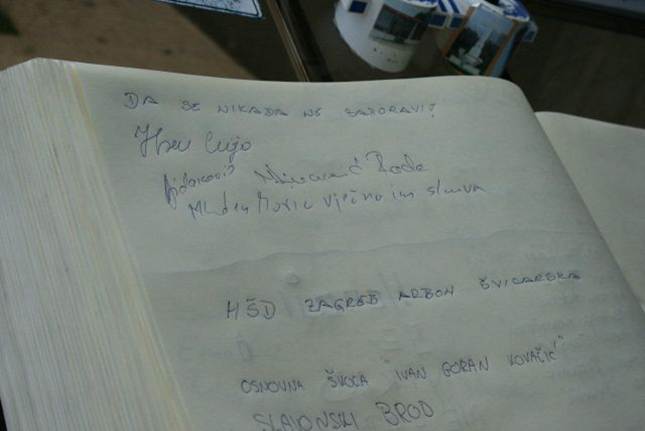 DA SE NIKADA NE ZABORAVI!
Rade
Mladen Horic vječna im slava
HŠD ZAGREB ARBON ŠVICARSKA
OSNOVNA ŠKOLA "IVAN GORAN KOVAČIĆ"
SLAVONSKI BROD